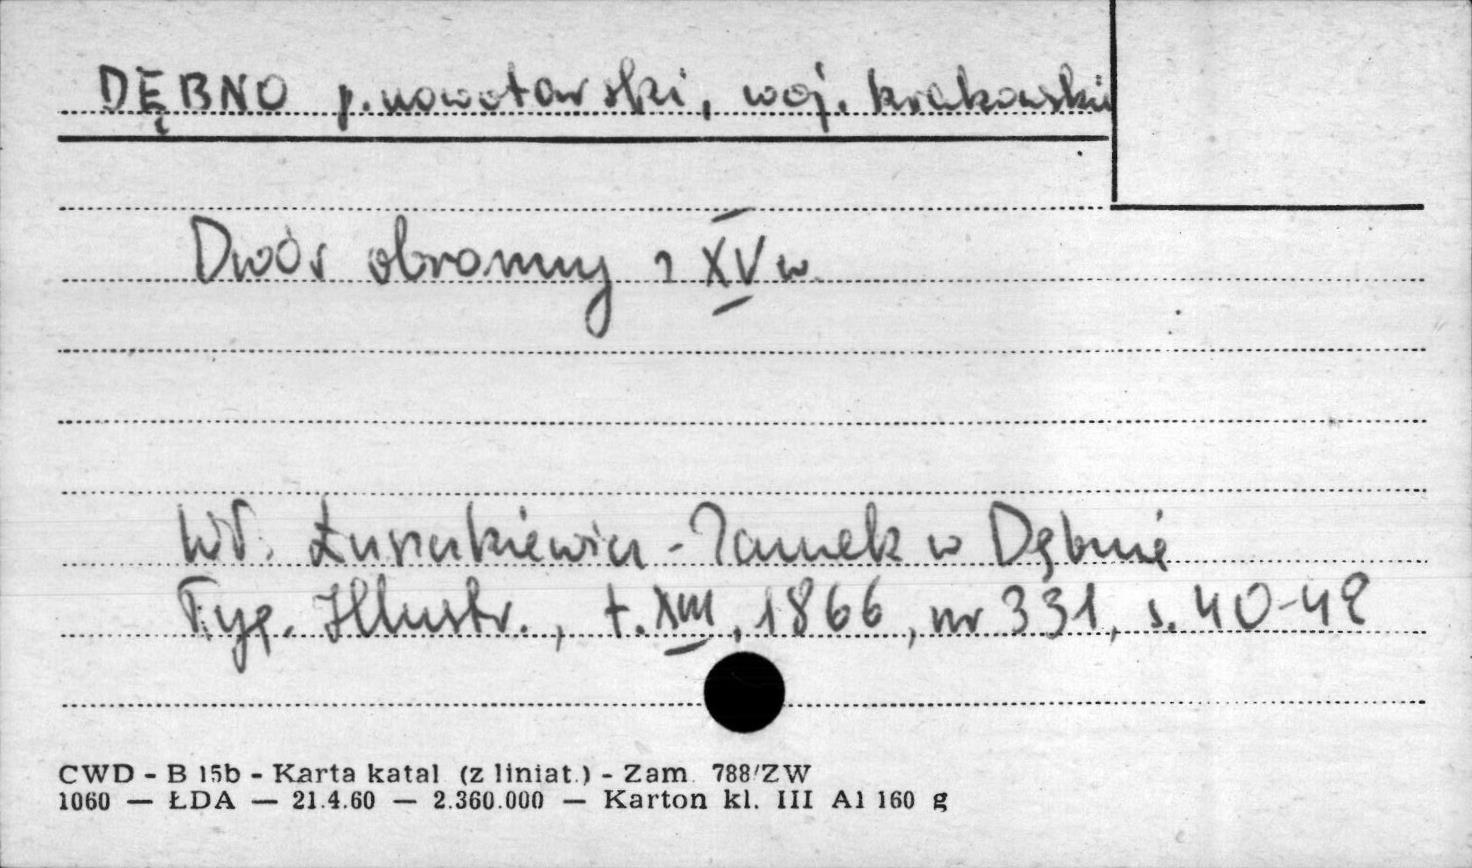 DĘBNO p. nowotarski, woj. krakowskie
Dwór obronny z XV w.
Wł. Łuszczkiewicz - Zamek w Dębnie
Tyg. Illustr., t. XIII, 1866, nr 331, s. 40-42
CWD - B 15b - Karta katal (z liniat.) - Zam. 788/ZW
1060 — ŁDA — 21.4.60 — 2.360.000 — Karton kl. III A1 160 g